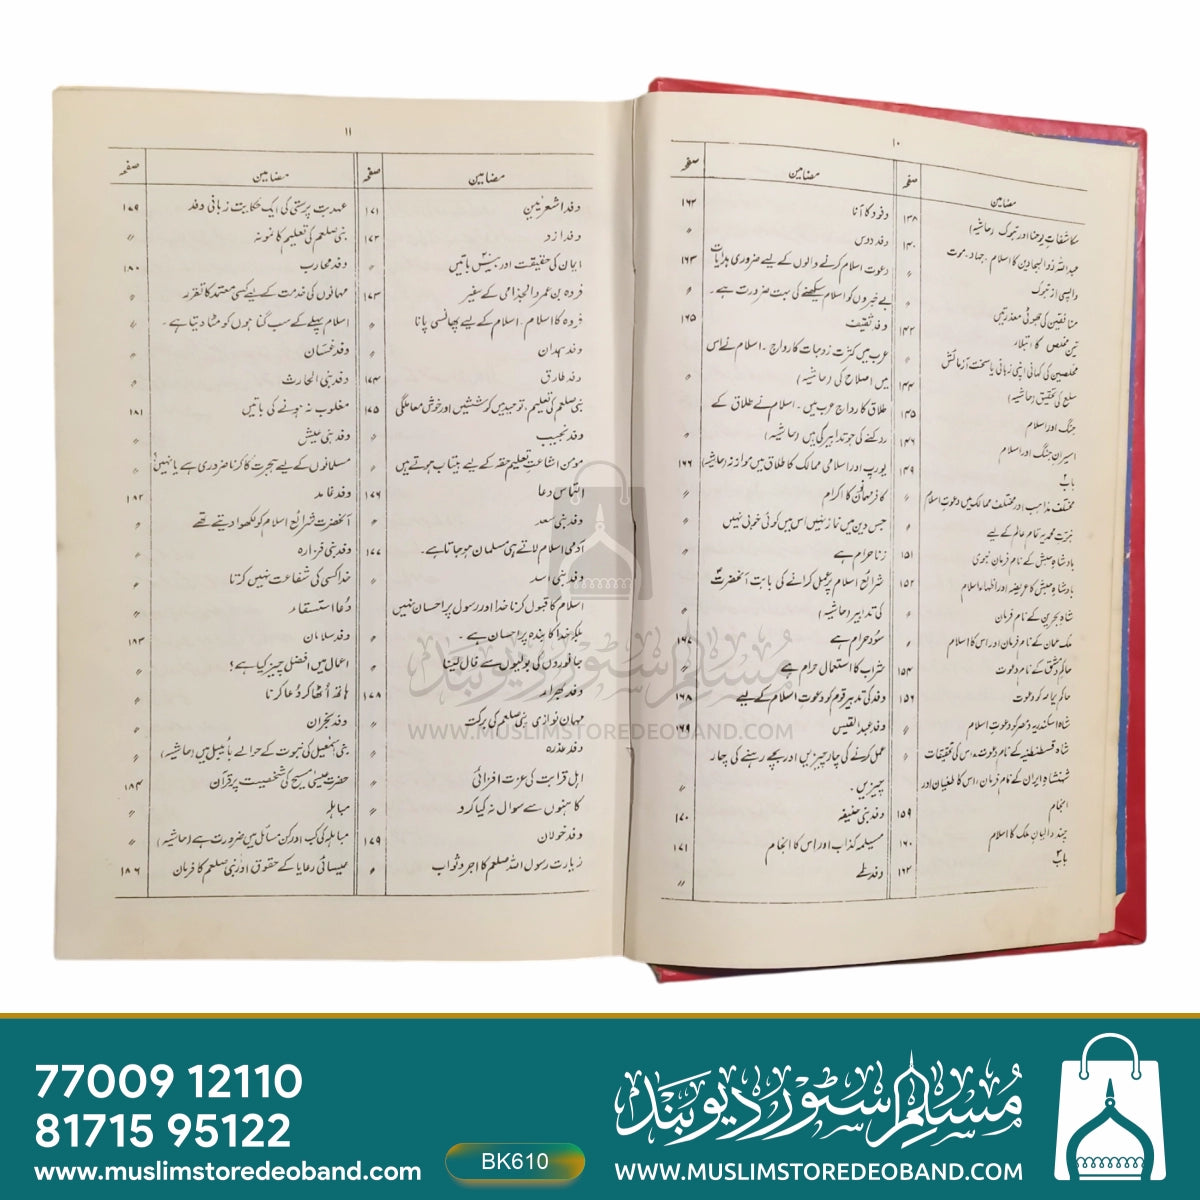 ۱۰
مضامین
صفحہ
مکاشفات یوحنا اور تبوک (حاشیہ)
۱۳۸
عبداللہ ذوالبجادین کا اسلام۔ جہاد۔ موت
۱۴۰
واپسی از تبوک
〃
منافقین کی جھوٹی معذرتیں
〃
تین مخلص کا ابتلاء
۱۴۲
مخلصین کی کہانی اپنی زبانی یا سخت آزمائش
〃
سلع کی تحقیق (حاشیہ)
۱۴۴
جنگ اور اسلام
۱۴۵
اسیران جنگ اور اسلام
۱۴۶
باب
۱۴۹
مختلف مذاہب اور مختلف ممالک میں دعوت اسلام
〃
نبوت محمدیہ تمام عالم کے لیے
〃
بادشاہ حبش کے نام فرمان نبوی
۱۵۱
بادشاہ حبش کا عریضہ اور اظہار اسلام
۱۵۲
شاہ بحرین کے نام فرمان
〃
ملک عمان کے نام فرمان اور اس کا اسلام
〃
حاکم دمشق کے نام دعوت
۱۵۴
حاکم یمامہ کو دعوت
۱۵۶
شاہ اسکندریہ مصر کو دعوت اسلام
〃
شاہ قسطنطنیہ کے نام دعوت، اس کی تحقیقات
〃
شہنشاہ ایران کے نام فرمان، اس کا طغیان اور
انجام
۱۵۹
چند والیان ملک کا اسلام
۱۶۰
باب
۱۶۲
مضامین
صفحہ
وفود کا آنا
۱۶۲
وفد دوس
〃
دعوت اسلام کرنے والوں کے لیے ضروری ہدایات
۱۶۳
بے خبروں کو اسلام سیکھنے کی بہت ضرورت ہے۔
〃
وفد ثقیف
۱۶۵
عرب میں کثرت زوجات کا رواج۔ اسلام نے اس
میں اصلاح کی (حاشیہ)
〃
طلاق کا رواج عرب میں۔ اسلام نے طلاق کے
روکنے کی جو تدابیر کی ہیں (حاشیہ)
〃
یورپ اور اسلامی ممالک کا طلاق میں موازنہ (حاشیہ)
۱۶۶
کافر مہمانوں کا اکرام
〃
جس دین میں نماز نہیں اس میں کوئی خوبی نہیں
〃
زنا حرام ہے
〃
شرائع اسلام پر عمل کرانے کی بابت آنحضرتؐ
کی تدابیر (حاشیہ)
〃
سود حرام ہے
۱۶۷
شراب کا استعمال حرام ہے
〃
وفد کی تدبیر قوم کو دعوت اسلام کے لیے
۱۶۸
وفد عبدالقیس
۱۶۹
عمل کرنے کی چار چیزیں اور بچے رہنے کی چار
چیزیں۔
〃
وفد بنی حنیفہ
۱۷۰
مسیلمہ کذاب اور اس کا انجام
۱۷۱
وفد طے
〃
۱۱
مضامین
صفحہ
وفد اشعریین
۱۷۱
وفد ازد
۱۷۲
ایمان کی حقیقت اور بیس باتیں
〃
فروہ بن عمرو الجذامی کے سفیر
۱۷۳
فروہ کا اسلام۔ اسلام کے لیے پھانسی پانا
〃
وفد ہمدان
〃
وفد طارق
۱۷۴
نبی صلعم کی تعلیم، توحید میں کوششیں اور خوش معاملگی
۱۷۵
وفد نجیب
〃
مومن اشاعت تعلیم حقہ کے لیے بیتاب ہوتے ہیں
〃
التماس دعا
۱۷۶
وفد بنی سعد
〃
آدمی اسلام لاتے ہی مسلمان ہو جاتا ہے۔
۱۷۷
وفد بنی اسد
〃
اسلام کا قبول کرنا خدا اور رسول پر احسان نہیں
بلکہ خدا کا بندہ پر احسان ہے۔
〃
جانوروں کی بولیوں سے فال لینا
〃
وفد بہراء
۱۷۸
مہمان نوازی نبی صلعم کی برکت
〃
وفد عذرہ
〃
اہل قرابت کی عزت افزائی
〃
کاہنوں سے سوال نہ کیا کرو
〃
وفد خولان
۱۷۹
زیارت رسول اللہ صلعم کا اجر و ثواب
〃
مضامین
صفحہ
عہد بت پرستی کی ایک حکایت زبانی وفد
۱۷۹
نبی صلعم کی تعلیم کا نمونہ
〃
وفد محارب
۱۸۰
مہمانوں کی خدمت کے لیے کسی معتمد کا تقرر
〃
اسلام پہلے کے سب گناہوں کو مٹا دیتا ہے۔
〃
وفد غسان
〃
وفد بنی الحارث
〃
مغلوب نہ ہونے کی باتیں
۱۸۱
وفد بنی عیش
〃
مسلمانوں کے لیے ہجرت کا کرنا ضروری ہے یا نہیں؟
〃
وفد غامد
۱۸۲
آنحضرت شرائع اسلام کو لکھوا دیتے تھے
〃
وفد بنی فزارہ
〃
خدا کسی کی شفاعت نہیں کرتا
〃
دعا استسقاء
〃
وفد سلامان
۱۸۳
اعمال میں افضل چیز کیا ہے؟
〃
ہاتھ اٹھا کر دعا کرنا
〃
وفد نجران
〃
بنی اسمٰعیل کی نبوت کے حوالے بائیبل میں (حاشیہ)
〃
حضرت عیسیٰ مسیح کی شخصیت پر قرآن
۱۸۴
مباہلہ
〃
مباہلہ کی کب اور کن مسائل میں ضرورت ہے (حاشیہ)
〃
عیسائی رعایا کے حقوق اور نبی صلعم کا فرمان
۱۸۶
مسلم سٹور دیوبند
WWW.MUSLIMSTOREDEOBAND.COM
77009 12110
81715 95122
www.muslimstoredeoband.com
BK610
مسلم سٹور دیوبند
WWW.MUSLIMSTOREDEOBAND.COM